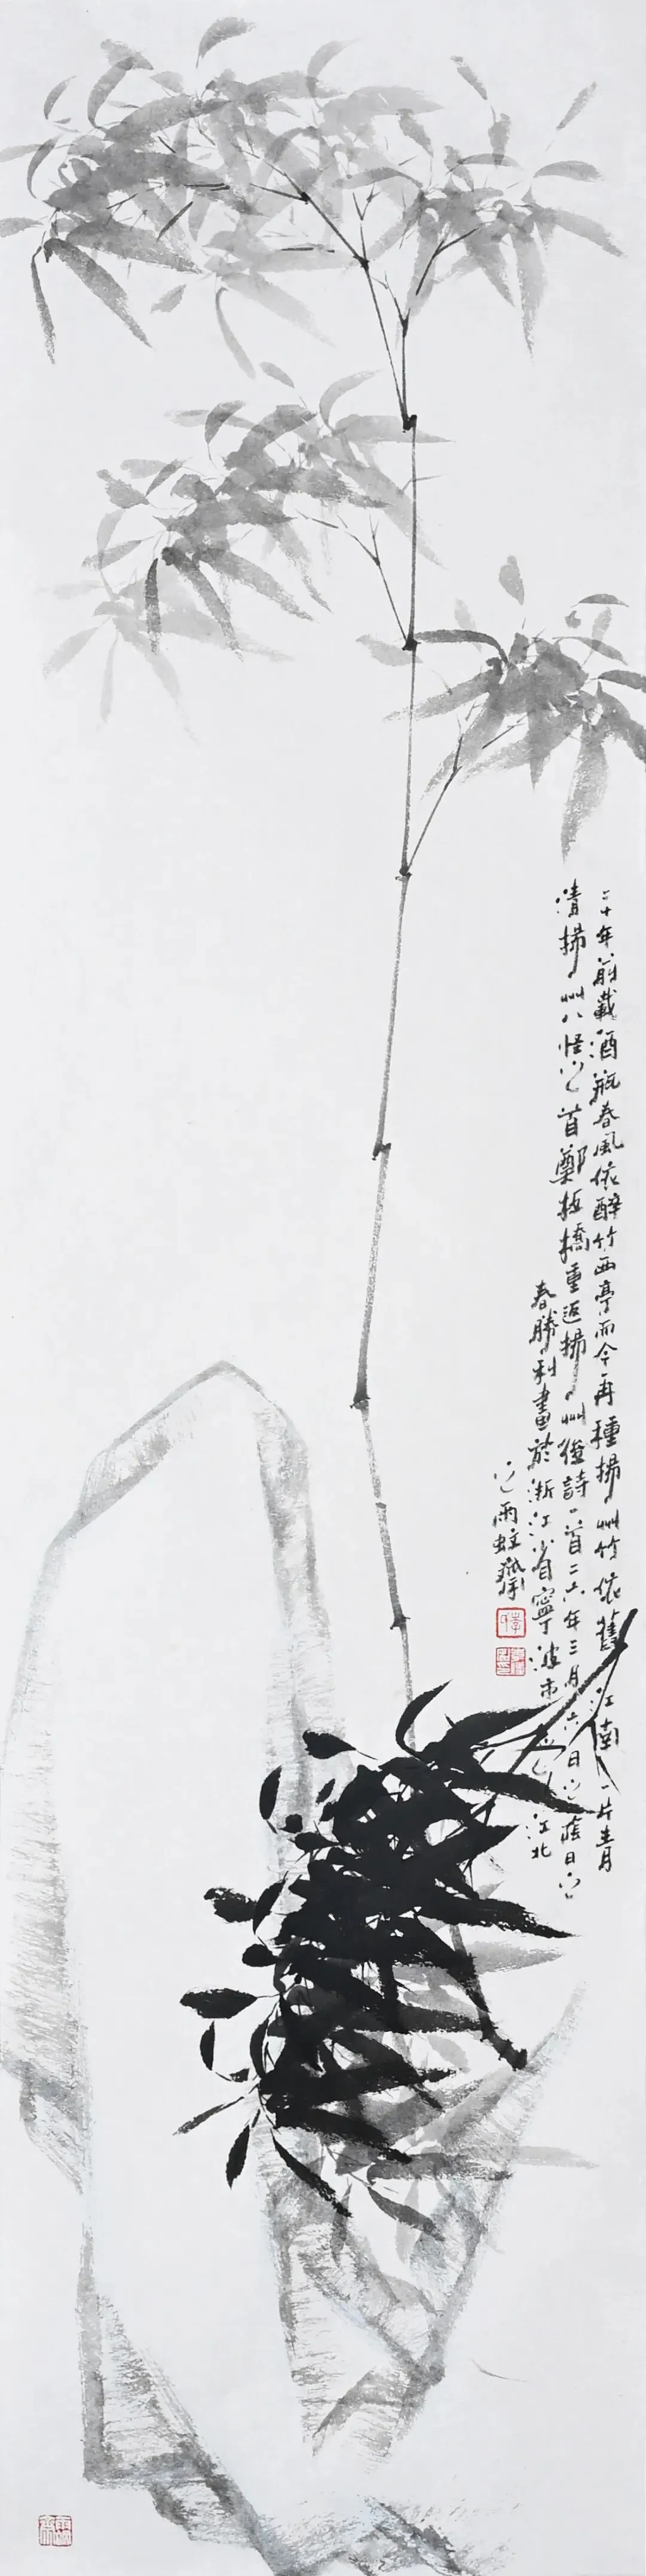 二十年前載酒瓶春風依醉竹西亭而今再種揚州竹依舊江南一片青
清揚州八怪之首鄭板橋重返揚州後詩一首二六年三月六日之蔭日之
春勝利畫於浙江省寧波市之江北
之雨蚊齋